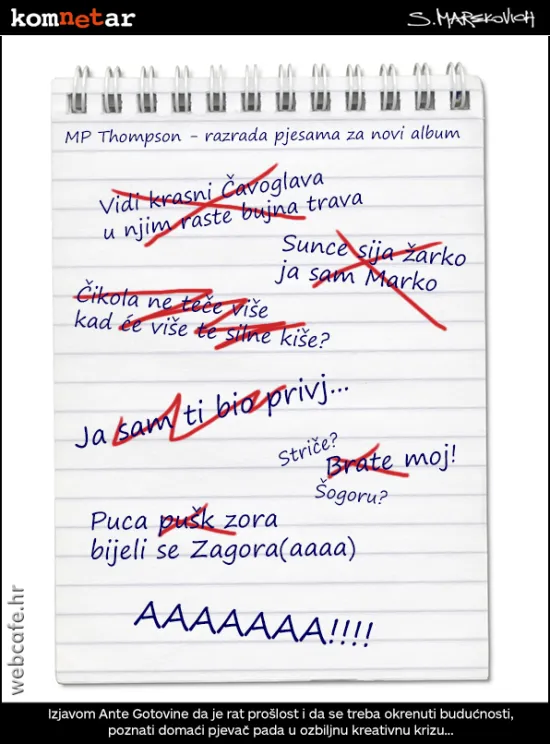 komnetar
S. MAREKOVICH
MP Thompson - razrada pjesama za novi album
Vidi krasni Čavoglava
u njim raste bujna trava
Sunce sija žarko
ja sam Marko
Čikola ne teče više
kad će više te silne kiše?
Ja sam ti bio privj...
Striče?
Brate moj!
Šogoru?
Puca pušk zora
bijeli se Zagora(aaaa)
AAAAAAA!!!!
webcafe.hr
Izjavom Ante Gotovine da je rat prošlost i da se treba okrenuti budućnosti,
poznati domaći pjevač pada u ozbiljnu kreativnu krizu...